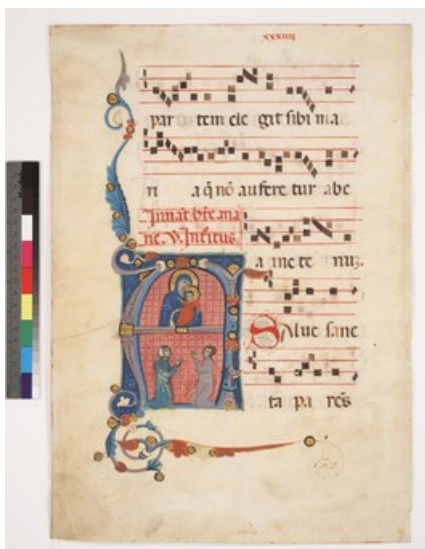 xxxiiij
par tem ele git sibi ma
ri a q̄ nō aufere tur abe
In nat bte ma
a in e te nuz.
Salue sanc
ta pa rēs